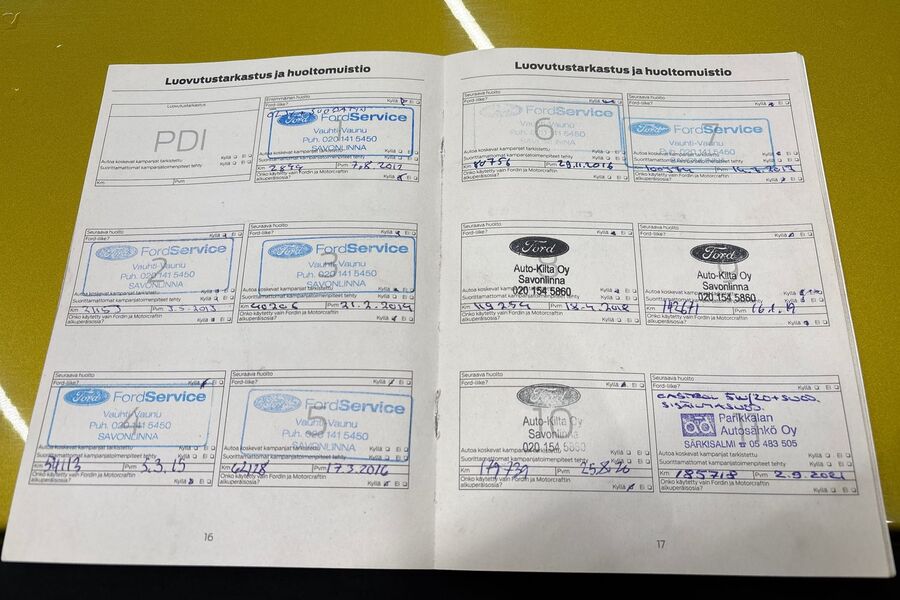 Luovutustarkastus ja huoltomuistio
Luovutustarkastus
PDI
Autoa koskevat kampanjat tarkistettu
Kyllä Ei
Suorittamattomat kampanjatoimenpiteet tehty
Kyllä Ei
Km Pvm
Ensimmäinen huolto
Ford-liike? Kyllä Ei
1
Ford FordService
Vauhti-Vaunu
Puh. 020 141 5450
SAVONLINNA
Suorittamattomat kampanjatoimenpiteet tehty
Km Pvm 7.8.2012
Onko käytetty vain Fordin ja Motorcraftin
alkuperäisosia? Kyllä Ei
Seuraava huolto
Ford-liike? Kyllä Ei
2
Ford FordService
Vauhti-Vaunu
Puh. 020 141 5450
SAVONLINNA
Autoa koskevat kampanjat tarkistettu
Suorittamattomat kampanjatoimenpiteet tehty
Kyllä Ei
Km Pvm 3.5.2013
Onko käytetty vain Fordin ja Motorcraftin
alkuperäisosia? Kyllä Ei
Seuraava huolto
Ford-liike? Kyllä Ei
3
Ford FordService
Vauhti-Vaunu
Puh. 020 141 5450
SAVONLINNA
Autoa koskevat kampanjat tarkistettu
Suorittamattomat kampanjatoimenpiteet tehty
Kyllä Ei
Km 40206 Pvm 21.2.2014
Onko käytetty vain Fordin ja Motorcraftin
alkuperäisosia? Kyllä Ei
Seuraava huolto
Ford-liike? Kyllä Ei
4
Ford FordService
Vauhti-Vaunu
Puh. 020 141 5450
SAVONLINNA
Autoa koskevat kampanjat tarkistettu
Kyllä Ei
Suorittamattomat kampanjatoimenpiteet tehty
Kyllä Ei
Km 54113 Pvm 3.3.15
Onko käytetty vain Fordin ja Motorcraftin
alkuperäisosia? Kyllä Ei
Seuraava huolto
Ford-liike? Kyllä Ei
5
Ford FordService
Vauhti-Vaunu
Puh. 020 141 5450
SAVONLINNA
Autoa koskevat kampanjat tarkistettu
Suorittamattomat kampanjatoimenpiteet tehty
Kyllä Ei
Km Pvm 17.3.2016
Onko käytetty vain Fordin ja Motorcraftin
alkuperäisosia? Kyllä Ei
16
Luovutustarkastus ja huoltomuistio
Seuraava huolto
Ford-liike? Kyllä Ei
6
Ford FordService
Vauhti-Vaunu
Puh. 020 141 5450
SAVONLINNA
Autoa koskevat kampanjat tarkistettu
Suorittamattomat kampanjatoimenpiteet tehty
Km 80756 Pvm 29.11.2016
Onko käytetty vain Fordin ja Motorcraftin
alkuperäisosia? Kyllä Ei
Seuraava huolto
Ford-liike? Kyllä Ei
7
Ford FordService
Vauhti-Vaunu
Puh. 020 141 5450
SAVONLINNA
Autoa koskevat kampanjat tarkistettu
Suorittamattomat kampanjatoimenpiteet tehty
Km Pvm
Onko käytetty vain Fordin ja Motorcraftin
alkuperäisosia? Kyllä Ei
Seuraava huolto
Ford-liike? Kyllä Ei
8
Ford
Auto-Kilta Oy
Savonlinna
020 154 5860
Autoa koskevat kampanjat tarkistettu
Kyllä Ei
Suorittamattomat kampanjatoimenpiteet tehty
Kyllä Ei
Km 119254 Pvm 18.4.2018
Onko käytetty vain Fordin ja Motorcraftin
alkuperäisosia? Kyllä Ei
Seuraava huolto
Ford-liike? Kyllä Ei
9
Ford
Auto-Kilta Oy
Savonlinna
020 154 5860
Autoa koskevat kampanjat tarkistettu
Suorittamattomat kampanjatoimenpiteet tehty
Kyllä Ei
Km 142611 Pvm 16.1.19
Onko käytetty vain Fordin ja Motorcraftin
alkuperäisosia? Kyllä Ei
Seuraava huolto
Ford-liike? Kyllä Ei
10
Auto-Kilta Oy
Savonlinna
020 154 5860
Autoa koskevat kampanjat tarkistettu
Kyllä Ei
Suorittamattomat kampanjatoimenpiteet tehty
Kyllä Ei
Km 179739 Pvm
Onko käytetty vain Fordin ja Motorcraftin
alkuperäisosia? Kyllä Ei
Seuraava huolto
Ford-liike? Kyllä Ei
CASTROL 5W/20+SUOD.
SISÄILMASUOD.
11
Parikkalan
Autosähkö Oy
SÄRKISALMI ☎ 05 483 505
Autoa koskevat kampanjat tarkistettu
Kyllä Ei
Suorittamattomat kampanjatoimenpiteet tehty
Kyllä Ei
Km 185718 Pvm 2.9.2021
Onko käytetty vain Fordin ja Motorcraftin
alkuperäisosia? Kyllä Ei
17